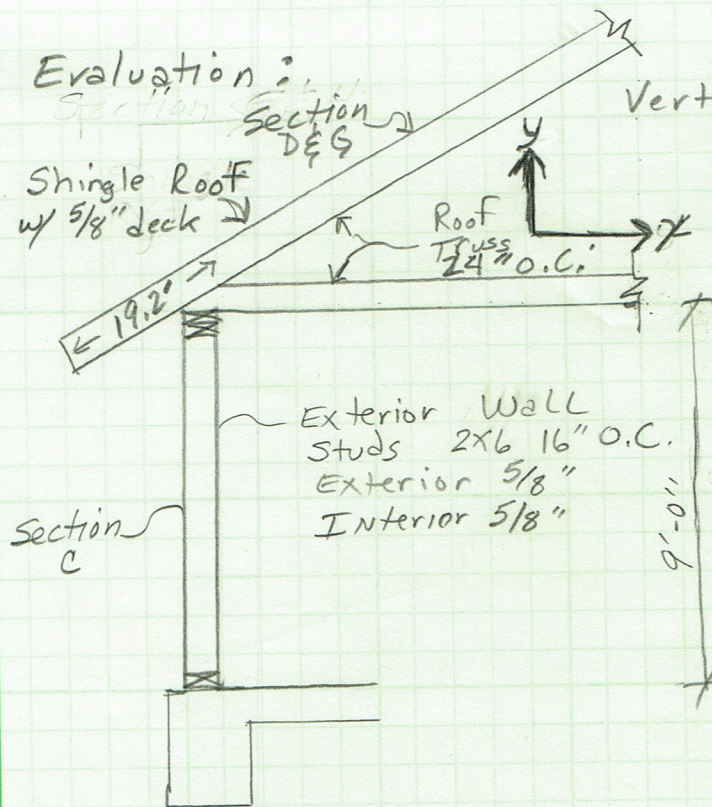 Evaluation :
Vert
Section
D&G
Shingle Roof
w/ 5/8" deck
y
x
Roof
Truss
24" O.C.
19.2"
Exterior Wall
Studs 2x6 16" O.C.
Exterior 5/8"
Interior 5/8"
Section
C
9'-0"